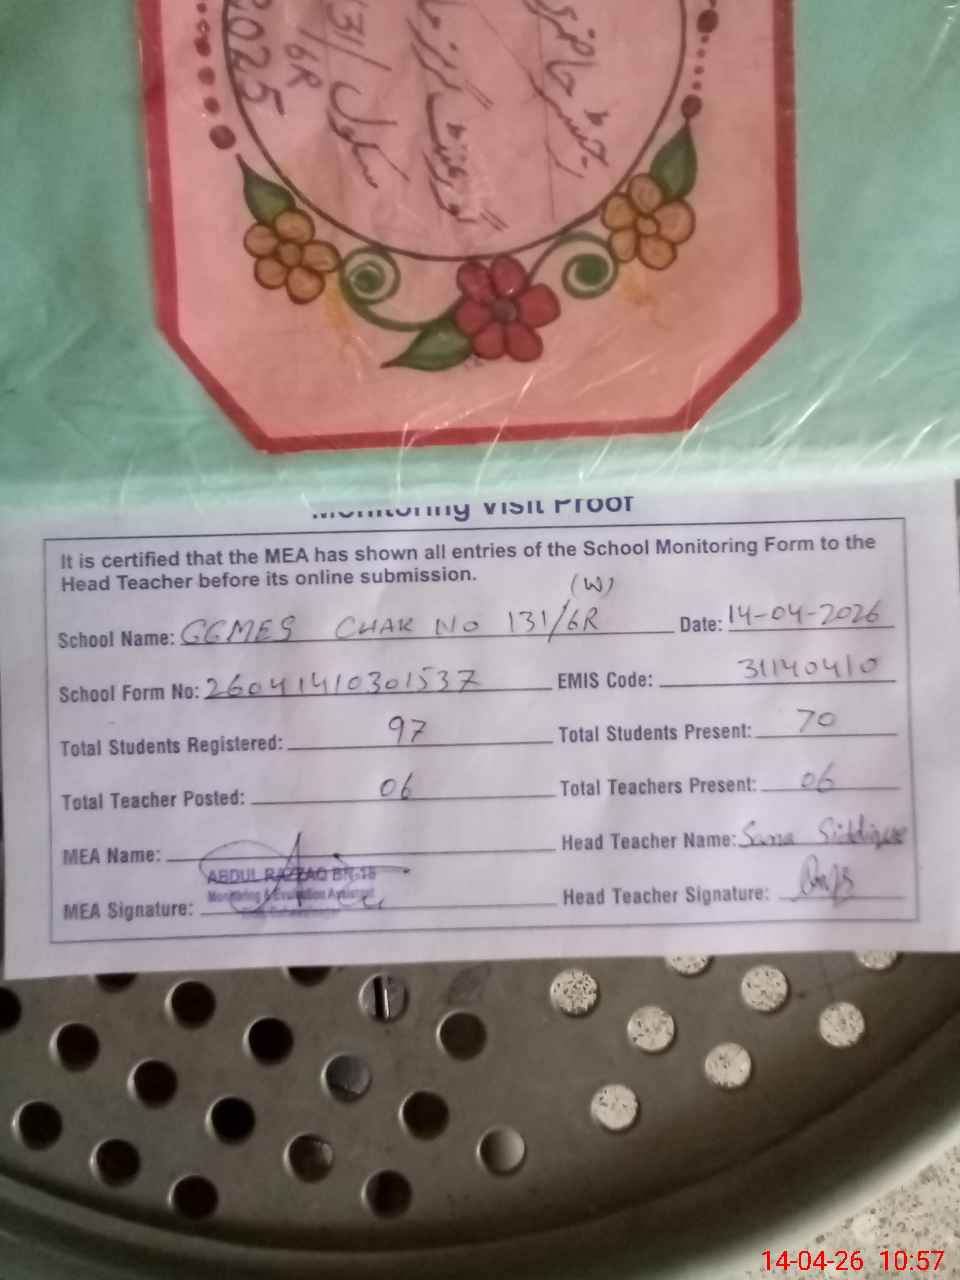 رجسٹر حاضری
گورنمنٹ گرلز
سکول 131/
6R
2025
Monitoring Visit Proof
It is certified that the MEA has shown all entries of the School Monitoring Form to the
Head Teacher before its online submission.
(W)
School Name: GGMES CHAK NO 131/6R Date: 14-04-2026
School Form No: 26041410301537 EMIS Code: 31140410
Total Students Registered: 97 Total Students Present: 70
Total Teacher Posted: 06 Total Teachers Present: 06
MEA Name: Head Teacher Name: Sana Siddique
ABDUL RAZZAQ BR-18
Monitoring & Evaluation Assistant
MEA Signature: Head Teacher Signature:
14-04-26 10:57